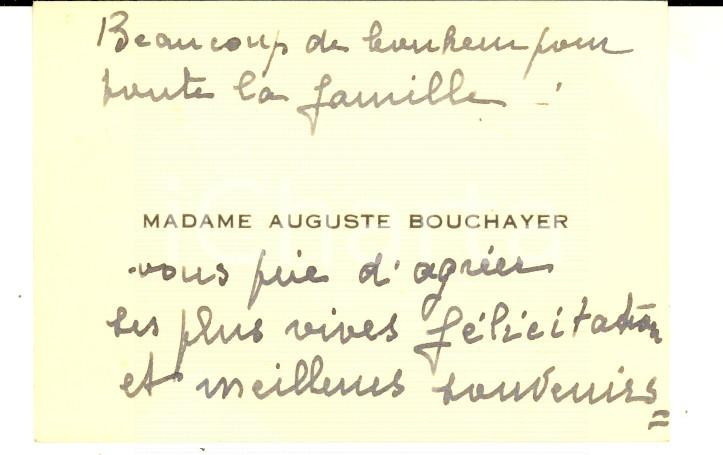 Beaucoup de bonheur pour
toute la famille !
MADAME AUGUSTE BOUCHAYER
vous prie d'agréer
ses plus vives félicitation
et meilleurs souvenirs